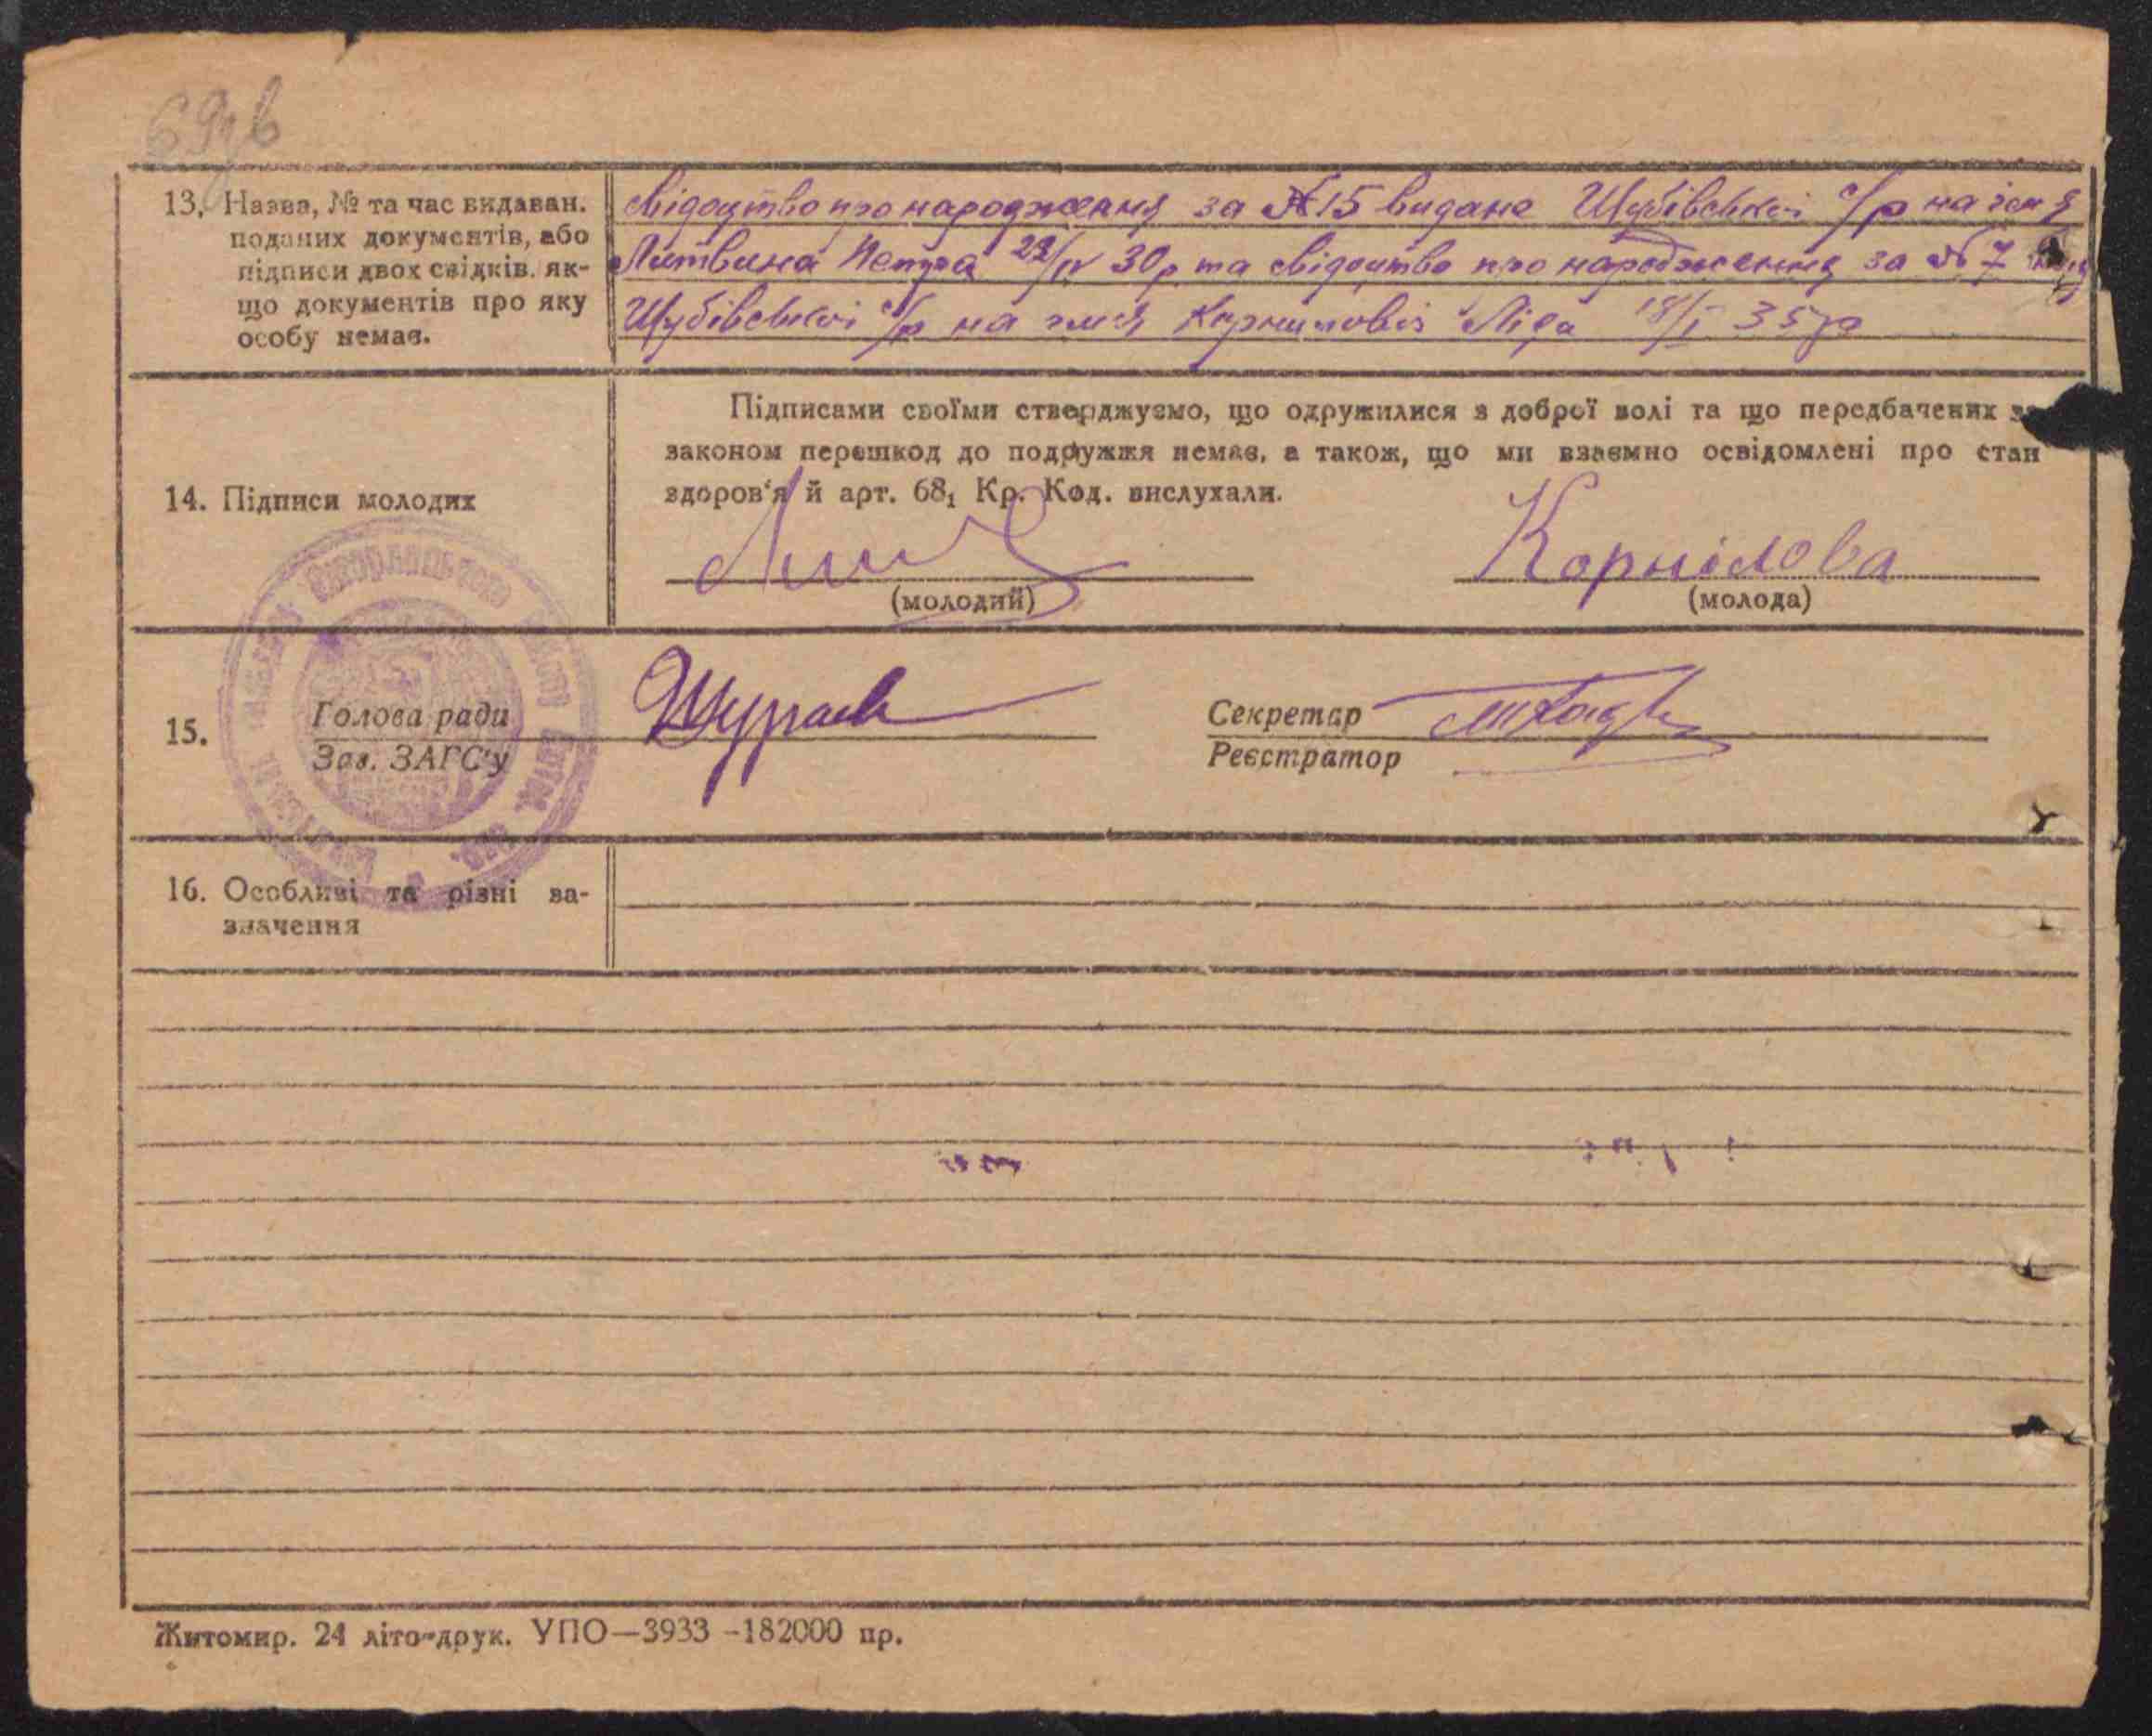 13. Назва, № та час видаван.
поданих документів, або
підписи двох свідків. як-
що документів про яку
особу немає.
свідоцтво про народження за №15 видане с/р на ім'я
Литвина Петра /IV 30р та свідоцтво про народження за №7
с/р на имя Ліда 18/I 35р
14. Підписи молодих
Підписами своїми стверджуємо, що одружилися з доброї волі та що передбачених
законом перешкод до подружжя немає, а також, що ми взаємно освідомлені про стан
здоров'я й арт. 68₁ Кр. Код. вислухали.
Корнілова
(молодий)
(молода)
15.
Голова ради
Зав. ЗАГС'у
Секретар
Реєстратор
16. Особливі та різні за-
значення
Житомир. 24 літо-друк. УПО—3933 -182000 пр.